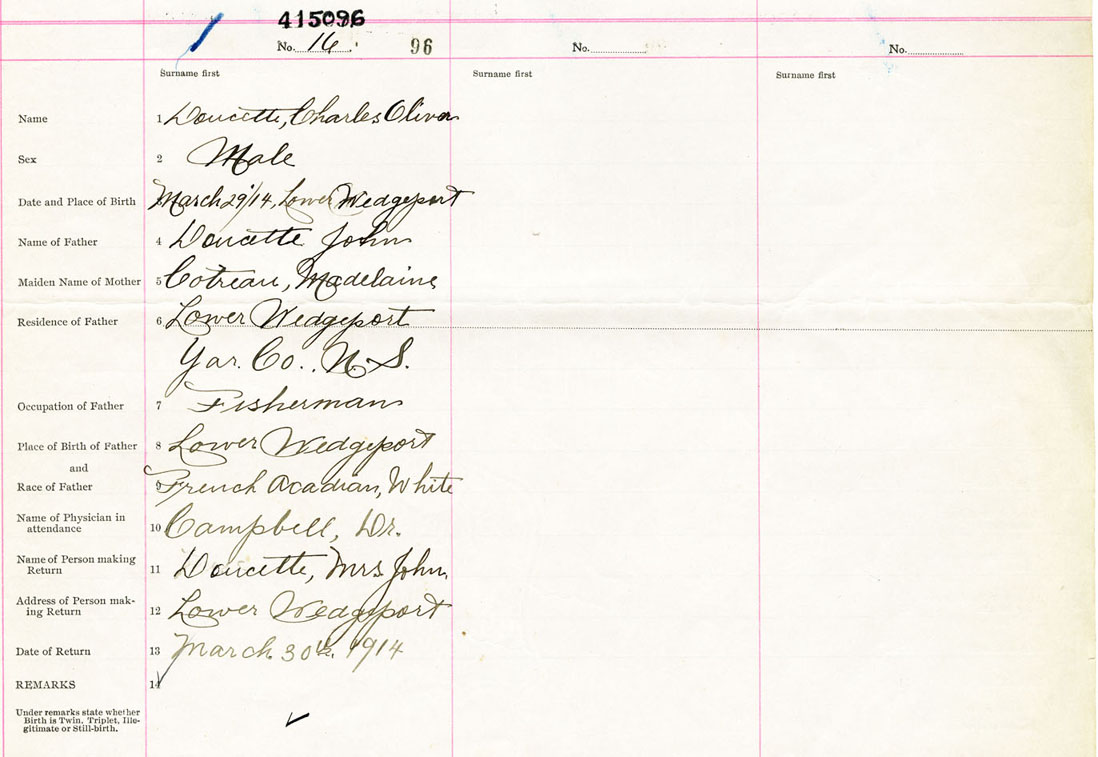 415096
No. 16 96 No. No.
Surname first Surname first Surname first
Name 1 Doucette, Charles Oliver
Sex 2 Male
Date and Place of Birth March 29/14, Lower Wedgeport
Name of Father 4 Doucette John
Maiden Name of Mother 5 Cotreau, Madelaine
Residence of Father 6 Lower Wedgeport
Yar. Co. N.S.
Occupation of Father 7 Fisherman
Place of Birth of Father 8 Lower Wedgeport
and
Race of Father 9 French Acadian, White
Name of Physician in
attendance 10 Campbell, Dr.
Name of Person making
Return 11 Doucette, Mrs John,
Address of Person mak-
ing Return 12 Lower Wedgeport
Date of Return 13 March 30th, 1914
REMARKS 14
Under remarks state whether
Birth is Twin, Triplet, Ille-
gitimate or Still-birth.